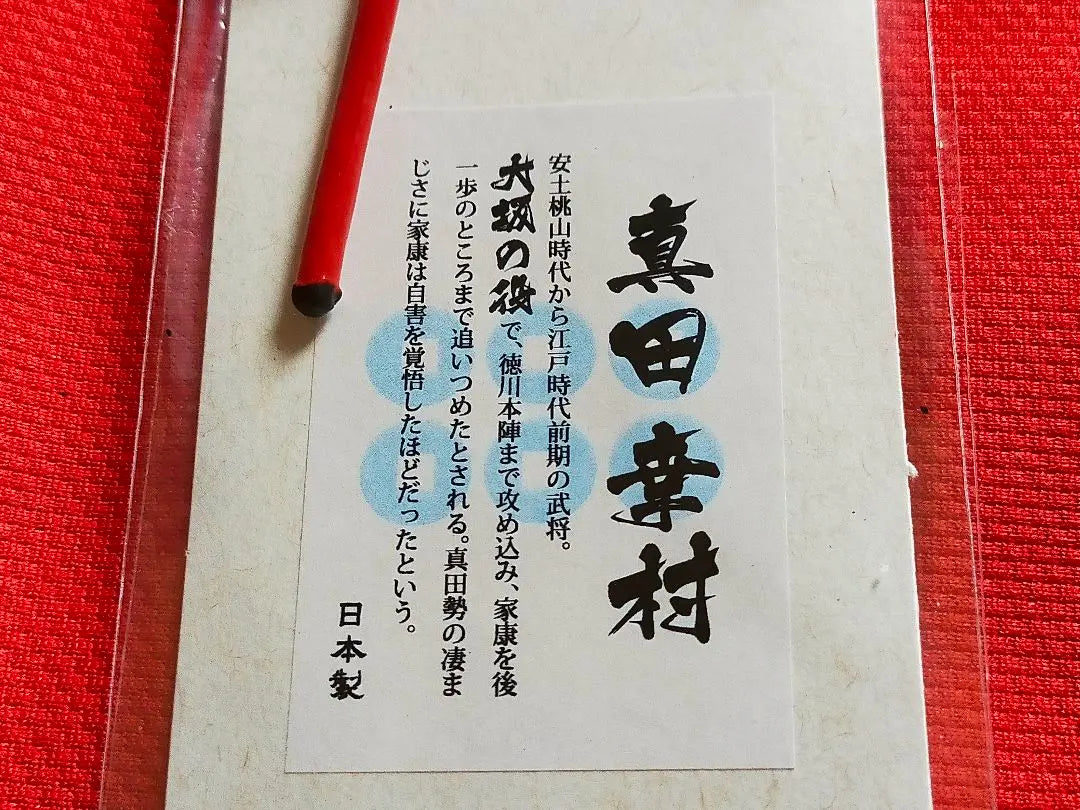 真田幸村
安土桃山時代から江戸時代前期の武将。
大坂の役で、徳川本陣まで攻め込み、家康を後
一歩のところまで追いつめたとされる。真田勢の凄ま
じさに家康は自害を覚悟したほどだったという。
日本製